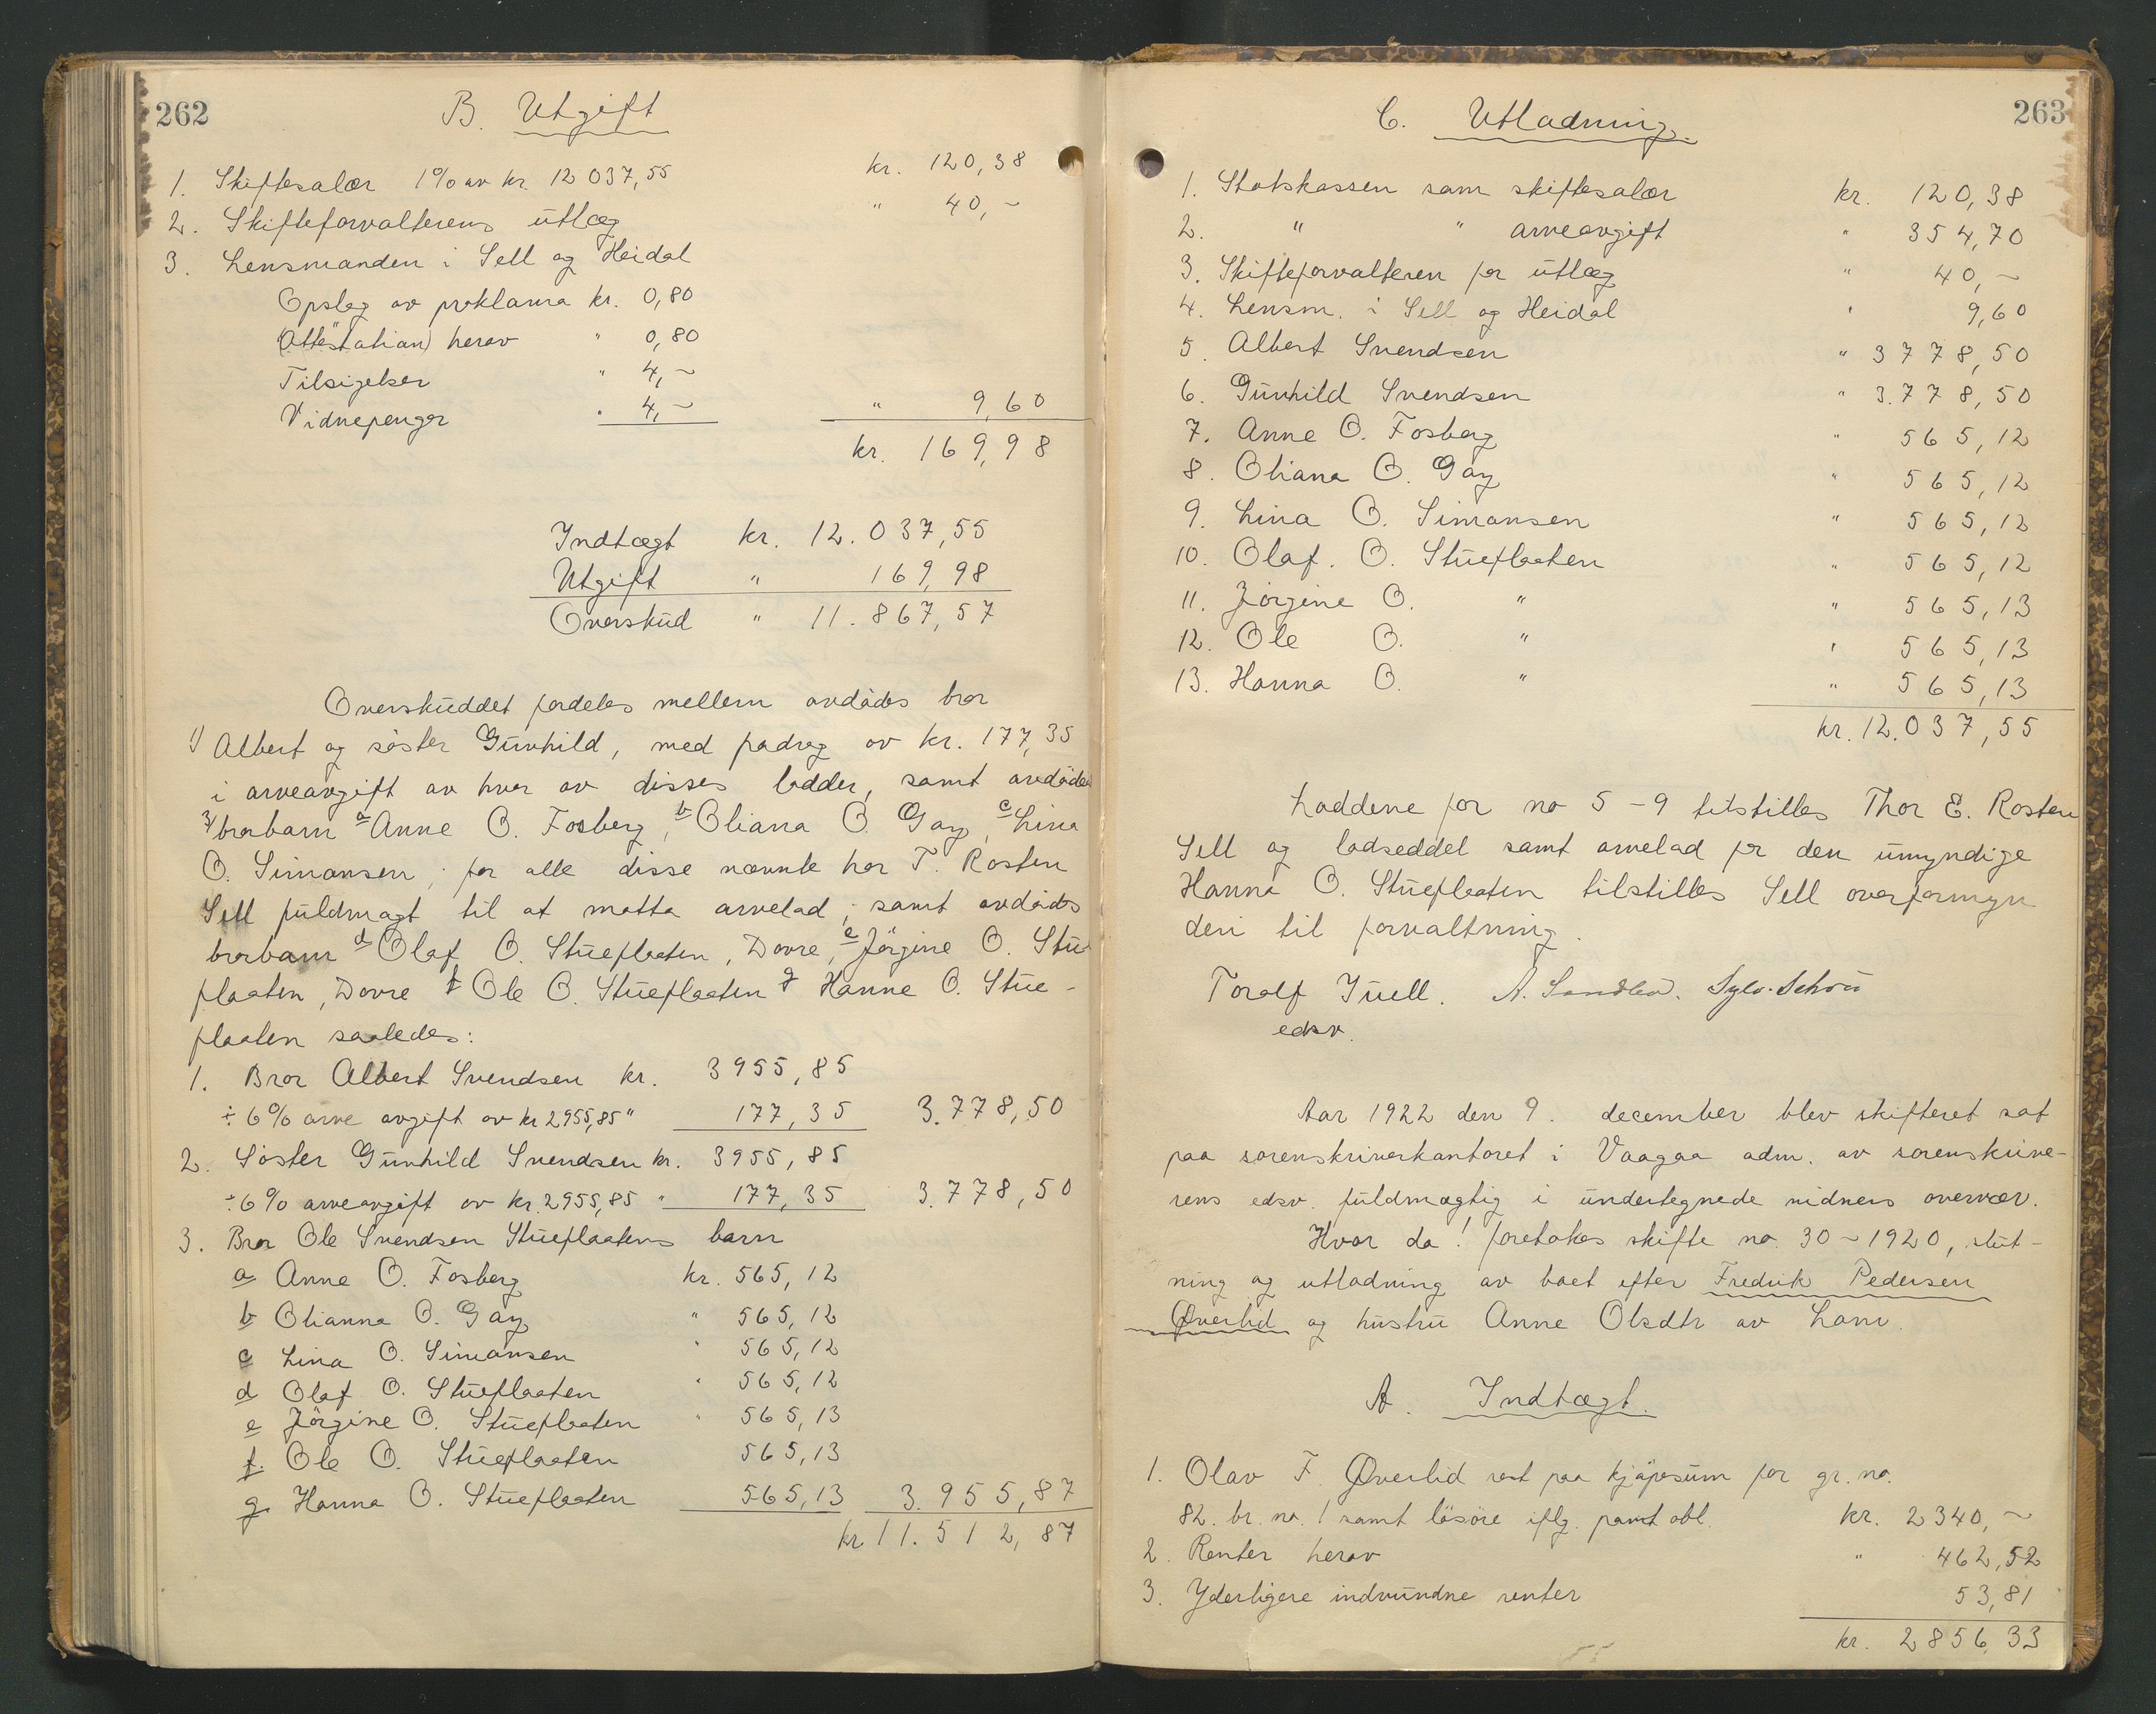 262
B. Utgift
1. Skiftesalær 1% av kr. 12 037,55 kr. 120,38
2. Skifteforvalterens utlæg " 40,~
3. Lensmanden i Sell og Heidal
Opslag av proklama kr. 0,80
(Attestation) herav " 0,80
Tilsigelser " 4,~
Vidnepenger " 4,~ " 9,60
kr. 169,98
Indtægt kr. 12.037,55
Utgift " 169,98
Overskud " 11.867,57
Overskuddet fordeles mellem avdødes bror
1) Albert og søster Gunhild, med fradrag av kr. 177,35
i arveavgift av hver av disses lodder, samt avdødes
3) brorbarn a Anne O. Fosberg, b Oliana O. Gay, c Lina
O. Simonsen; for alle disse nævnte har T. Rosten
Sell fuldmagt til at motta arvelod; samt avdødes
brorbarn d Olaf O. Stueflaaten, Dovre, e Jörgine O. Stue
flaaten, Dovre f Ole O. Stueflaaten g Hanne O. Stue-
flaaten saaledes:
1. Bror Albert Svendsen kr. 3955,85
÷ 6% arve avgift av kr 2955,85 " 177,35 3.778,50
2. Søster Gunhild Svendsen kr. 3955,85
÷ 6% arveavgift av kr. 2955,85 " 177,35 3.778,50
3. Bror Ole Svendsen Stueflaatens barn
a Anne O. Fosberg kr. 565,12
b Olianna O. Gay " 565,12
c Lina O. Simonsen " 565,12
d Olaf O. Stueflaaten " 565,12
e Jörgine O. Stueflaaten " 565,13
f. Ole O. Stueflaaten 565,13
g. Hanna O. Stueflaaten 565,13 3.955,87
kr 11.512,87
263
C. Utlodning.
1. Statskassen som skiftesalær kr. 120,38
2. " " arveavgift " 354,70
3. Skifteforvalteren for utlæg " 40,~
4. Lensm. i Sell og Heidal " 9,60
5. Albert Svendsen " 3778,50
6. Gunhild Svendsen " 3.778,50
7. Anne O. Fosberg " 565,12
8. Oliana O. Gay " 565,12
9. Lina O. Simonsen " 565,12
10. Olaf. O. Stueflaaten " 565,12
11. Jörgine O. " " 565,13
12. Ole O. " " 565,13
13. Hanna O. " " 565,13
kr. 12.037,55
Loddene for no 5-9 tilstilles Thor E. Rosten
Sell og lodseddel samt arvelod for den umyndige
Hanna O. Stueflaaten tilstilles Sell overformyn
deri til forvaltning.
Toralf Juell. A. Sandbu. Sylv. Schou
edsv.
Aar 1922 den 9. december blev skifteret sat
paa sorenskriverkontoret i Vaagaa adm. av sorenskrive-
rens edsv. fuldmægtig i undertegnede vidners overvær.
Hvor da! foretokes skifte no. 30-1920, slut-
ning og utlodning av boet efter Fredrik Pedersen
Øverlid og hustru Anne Olsdtr av Lom.
A. Indtægt.
1. Olav F. Øverlid rest paa kjøpesum for gr. no.
82. br. no. 1 samt løsøre iflg. pant obl. kr. 2340,~
2. Renter herav " 462,52
3. Yderligere indvundne renter 53,81
kr. 2856,33